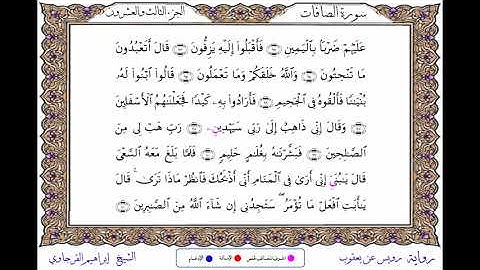 سورة الصافات
الجزء الثالث والعشرون
عَلَيْهُمْ ضَرْبًۢا بِٱلْيَمِينِ فَأَقْبَلُوٓا۟ إِلَيْهِ يَزِفُّونَ قَالَ أَتَعْبُدُونَ
مَا تَنْحِتُونَ وَٱللَّهُ خَلَقَكُمْ وَمَا تَعْمَلُونَ قَالُوا۟ ٱبْنُوا۟ لَهُۥ
بُنْيَٰنًا فَأَلْقُوهُ فِى ٱلْجَحِيمِ فَأَرَادُوا۟ بِهِۦ كَيْدًا فَجَعَلْنَٰهُمُ ٱلْأَسْفَلِينَ
وَقَالَ إِنِّى ذَاهِبٌ إِلَىٰ رَبِّى سَيَهْدِينِۦ رَبِّ هَبْ لِى مِنَ
ٱلصَّٰلِحِينَ فَبَشَّرْنَٰهُ بِغُلَٰمٍ حَلِيمٍ فَلَمَّا بَلَغَ مَعَهُ ٱلسَّعْىَ
قَالَ يَٰبُنَىِّ إِنِّىٓ أَرَىٰ فِى ٱلْمَنَامِ أَنِّىٓ أَذْبَحُكَ فَٱنظُرْ مَاذَا تَرَىٰ ۚ قَالَ
يَٰٓأَبَتِ ٱفْعَلْ مَا تُؤْمَرُ ۖ سَتَجِدُنِىٓ إِن شَآءَ ٱللَّهُ مِنَ ٱلصَّٰبِرِينَ
رواية رويس عن يعقوب
الشيخ إبراهيم الفرجاوي